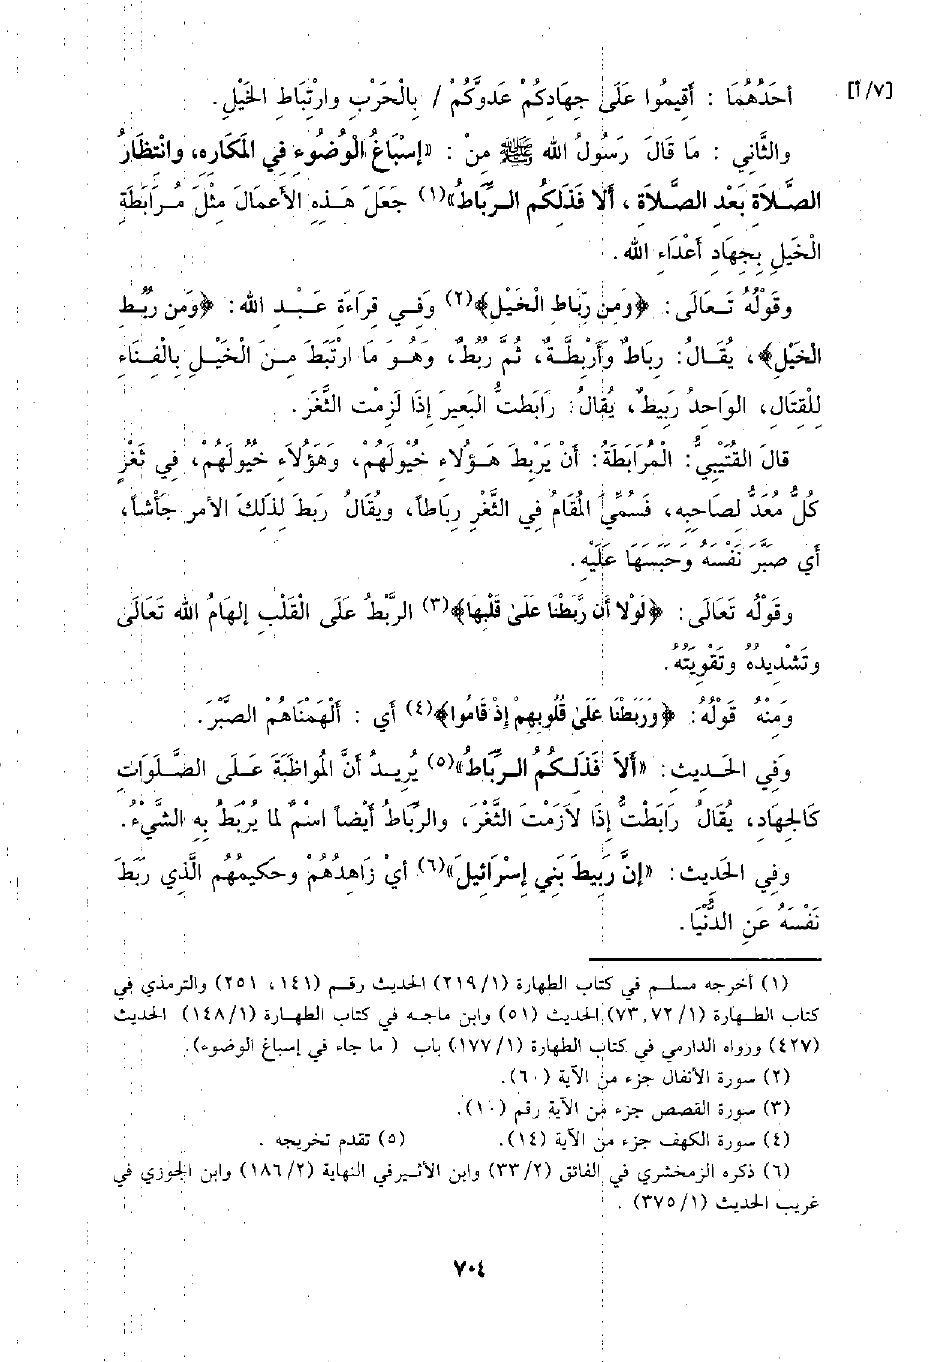 [٧/أ]
أحَدُهُمَا : أَقِيمُوا عَلَى جِهَادِكُمْ عَدوَّكُمْ / بِالْحَرْبِ وارْتِبَاطِ الخَيْلِ.
والثَّانِي : مَا قَالَ رَسُولُ الله ﷺ مِنْ : «إسْبَاغُ الْوُضُوءِ فِي المَكَارِهِ، وانْتِظَارُ
الصَّلَاةِ بَعْد الصَّلاَةِ ، أَلَا فَذَلَكُم الرِّبَاطُ»(١) جَعَلَ هَذِهِ الأَعْمَالَ مِثْلَ مُرَابَطَةِ
الخَيْلِ بِجِهَادِ أَعْدَاءِ الله .
وقَوْلُهُ تَعَالَى: ﴿وَمِن رِّبَاطِ الْخَيْلِ﴾(٢) وَفِي قِرَاءَةِ عَبْدِ الله: ﴿وَمِن رُبُطِ
الْخَيْلِ﴾، يُقَالُ: رِبَاطٌ وَأَرْبِطَةٌ، ثُمَّ رُبُطٌ، وَهُوَ مَا ارْتَبَطَ مِنَ الْخَيْلِ بِالْفِنَاءِ
لِلْقِتَالِ، الوَاحِدُ رَبِيطٌ، يُقَالُ: رَابَطتُّ البَعِيرَ إذَا لَزِمْت الثَّغَرَ.
قالَ القُتَيْبِيُّ: الْمُرَابَطَةُ: أَنْ يَرْبِطَ هَؤُلاءِ خُيُولَهُمْ، وَهَؤُلَاءِ خُيُولَهُمْ، فِي ثَغْرٍ
كُلٌّ مُعَدٌّ لِصَاحِبِهِ، فَسُمِّيَ المُقَامُ فِي الثَّغْرِ رِبَاطاً، ويُقَالُ رَبَطَ لِذَلِكَ الأَمْرِ جَأْشاً،
أي صَبَّرَ نَفْسَهُ وَحَبَسَهَا عَلَيْهِ.
وقَوْلُه تَعَالَى: ﴿لَوْلَا أَن رَّبَطْنَا عَلَىٰ قَلْبِهَا﴾(٣) الرَّبْطُ عَلَى الْقَلْبِ إلهَامُ الله تَعَالَى
وَتَشْدِيدُهُ وتَقْوِيَتُهُ.
وَمِنْهُ قَوْلُهُ: ﴿وَرَبَطْنَا عَلَىٰ قُلُوبِهِمْ إِذْ قَامُوا﴾(٤) أي : أَلْهَمْنَاهُم الصَّبْرَ.
وَفِي الحَدِيث: «أَلاَ فَذَلَكُم الرِّبَاطُ»(٥) يُرِيدُ أَنَّ المُواظَبَةَ عَلَى الصَّلَوَاتِ
كَالجِهَادِ، يُقَالُ رَابَطْتُّ إذَا لاَزَمْتَ الثَّغْرَ، والرِّبَاطُ أَيْضاً اسْمٌ لمَا يُرْبَطُ بِهِ الشَّيْءُ.
وفِي الحَدِيثِ: «إِنَّ رَبِيطَ بَنِي إِسْرَائِيلَ»(٦) أيْ زَاهِدُهُمْ وحَكِيمُهُم الَّذِي رَبَطَ
نَفْسَهُ عَنِ الدُّنْيَا.
(١) أخرجه مسلم في كتاب الطهارة (٢١٩/١) الحديث رقم (١٤١، ٢٥١) والترمذي في
كتاب الطهارة (٧٢/١، ٧٣) الحديث (٥١) وابن ماجه في كتاب الطهارة (١٤٨/١) الحديث
(٤٢٧) ورواه الدارمي في كتاب الطهارة (١٧٧/١) باب ( ما جاء في إسباغ الوضوء).
(٢) سورة الأنفال جزء من الآية (٦٠).
(٣) سورة القصص جزء من الآية رقم (١٠).
(٤) سورة الكهف جزء من الآية (١٤). (٥) تقدم تخريجه .
(٦) ذكره الزمخشري في الفائق (٣٣/٢) وابن الأثير في النهاية (١٨٦/٢) وابن الجوزي في
غريب الحديث (٣٧٥/١) .
٧٠٤